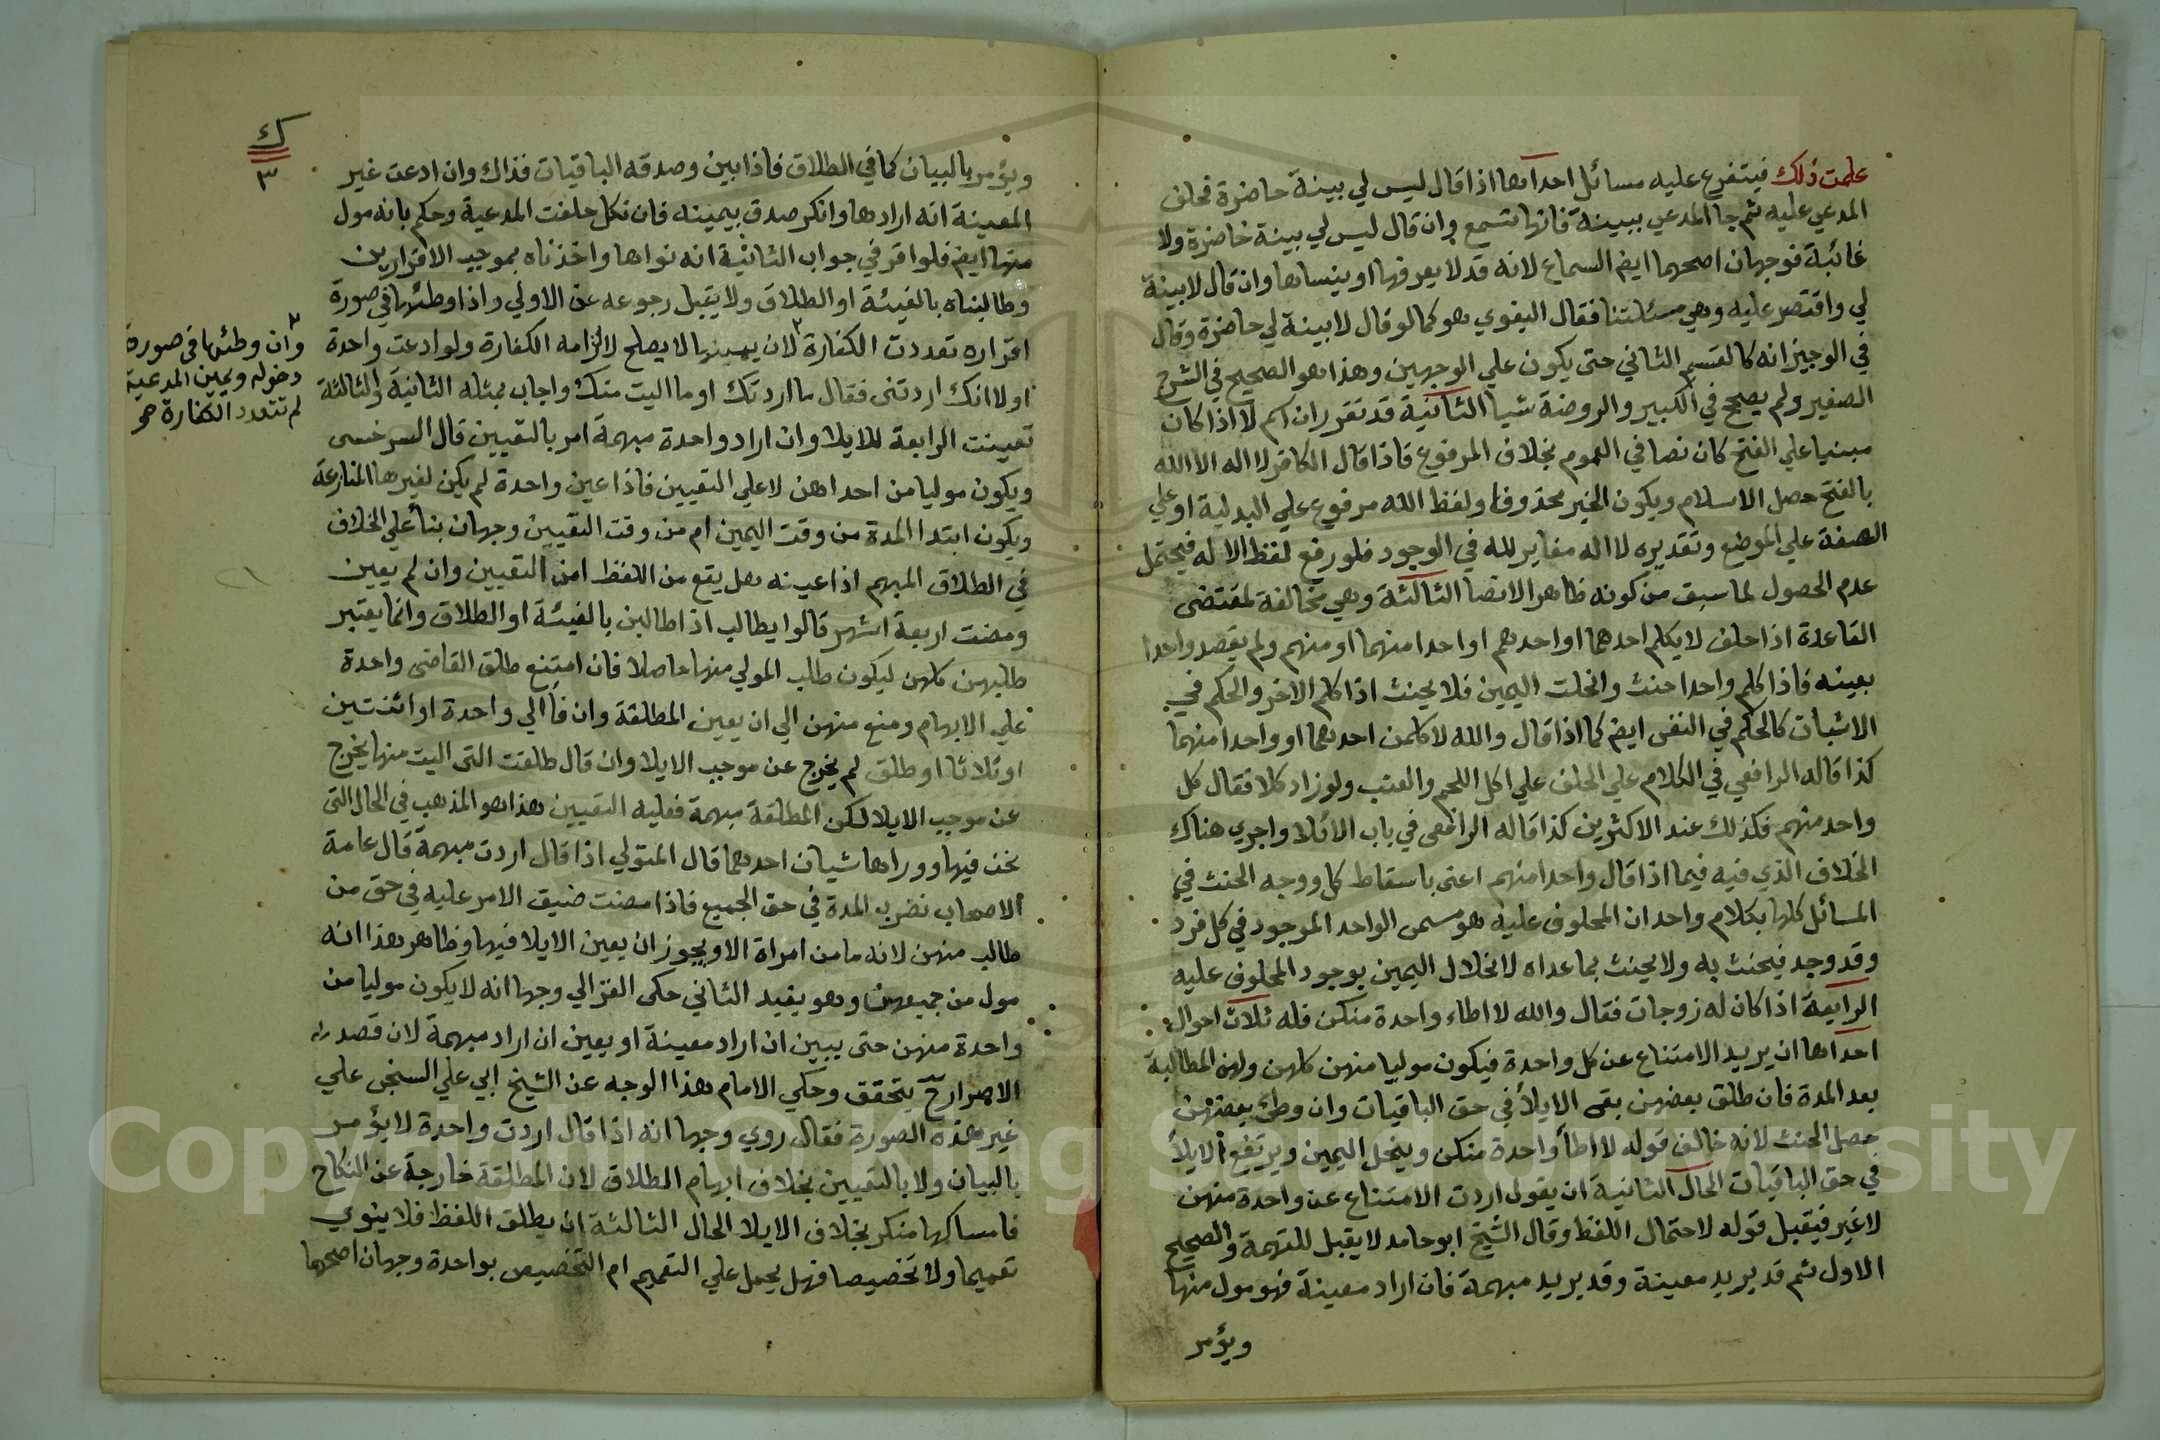 علمت ذلك فيتفرع عليه مسائل احداها اذا قال ليس لي بينة حاضرة فحلف
المدعي عليه ثم جا المدعي ببينة فانها تسمع وان قال ليس لي بينة حاضرة ولا
غائبة فوجهان اصحهما ايض السماع لانه قد لا يعرفها او ينساها وان قال لا بينة
لي واقتصر عليه وهي مسئلتنا فقال البغوي هو كما لو قال لا بينة لي حاضرة وقال
في الوجيز انه كالقسم الثاني حتى يكون علي الوجهين وهذا هو الصحيح في الشرح
الصغير ولم يصحح في الكبير والروضة شيا الثانية قد تقرر ان اسم لا اذا كان
مبنيا علي الفتح كان نصا في العموم بخلاف المرفوع فاذا قال الكافر لا اله الا الله
بالفتح حصل الاسلام ويكون الخبر محذوفا ولفظ الله مرفوع علي البدلية او علي
الصفة علي الموضع وتقديره لا اله مغاير لله في الوجود فلو رفع لفظ الاله فيحتمل
عدم الحصول لما سبق من كونه ظاهرا لا نصا الثالثة وهي مخالفة لمقتضى
القاعدة اذا حلف لا يكلم احدهما او احدهم او واحدا منهما او منهم ولم يقصد واحدا
بعينه فاذا كلم واحدا حنث وانحلت اليمين فلا يحنث اذا كلم الاخر والحكم في
الاثبات كالحكم في النفى ايض كما اذا قال والله لاكلمن احدهما او واحدا منهما
كذا قاله الرافعي في الكلام علي الحلف علي اكل اللحم والعنب ولو زاد كلا فقال كل
واحد منهم فكذلك عند الاكثرين كذا قاله الرافعى في باب الايلا واجري هناك
الخلاف الذي فيه فيما اذا قال واحدا منهم اعنى باسقاط كل ووجه الحنث في
المسائل كلها بكلام واحد ان المحلوف عليه هو مسمى الواحد الموجود في كل فرد
وقد وجد فيحنث به ولا يحنث بما عداه لانحلال اليمين بوجود المحلوف عليه
الرابعة اذا كان له زوجات فقال والله لا اطاء واحدة منكن فله ثلاث احوال
احداها ان يريد الامتناع عن كل واحدة فيكون موليا منهن كلهن ولهن المطالبة
بعد المدة فان طلق بعضهن بقى الايلاء في حق الباقيات وان وطئ بعضهن
حصل الحنث لانه خالف قوله لا اطأ واحدة منكن وينحل اليمين ويرتفع الايلاء
في حق الباقيات الحال الثانية ان يقول اردت الامتناع عن واحدة منهن
لا غير فيقبل قوله لاحتمال اللفظ وقال الشيخ ابو حامد لا يقبل للتهمة والصحيح
الاول ثم قد يريد معينة وقد يريد مبهمة فان اراد معينة فهو مول منها
ويؤمر
ك
٣
ويؤمر بالبيان كما في الطلاق فاذا بين وصدقه الباقيات فذاك وان ادعت غير
المعينة انه ارادها وانكر صدق بيمينه فان نكل حلفت المدعية وحكم بانه مول
منها ايض فلو اقر في جواب الثانية انه نواها واخذناه بموجب الاقرارين
وطالبناه بالفيئة او الطلاق ولا يقبل رجوعه عن الاولي واذا وطئها في صورة
اقراره تعددت الكفارة لان يمينها لا يصلح لالزامه الكفارة ولو ادعت واحدة
اولا انك اردتنى فقال ما اردتك او ما اليت منك واجاب بمثله الثانية والثالثة
تعينت الرابعة للايلا وان اراد واحدة مبهمة امر بالتعيين قال السرخسى
ويكون موليا من احداهن لا علي التعيين فاذا عين واحدة لم يكن لغيرها المنازعة
ويكون ابتدا المدة من وقت اليمين ام من وقت التعيين وجهان بنأ علي الخلاف
في الطلاق المبهم اذا عينه هل يقع من اللفظ امن التعيين وان لم يعين
ومضت اربعة اشهر قالوا يطالب اذا طالبن بالفيئة او الطلاق وانما يعتبر
طلبهن كلهن ليكون طلب المولي منها حاصلا فان امتنع طلق القاضى واحدة
علي الابهام ومنع منهن الي ان يعين المطلقة وان فأ الي واحدة او اثنتين
او ثلاثا او طلق لم يخرج عن موجب الايلا وان قال طلقت التى اليت منها يخرج
عن موجب الايلا لكن المطلقة مبهمة فعليه التعيين هذا هو المذهب في الحال التى
نحن فيها ووراها شيان احدهما قال المتولي اذا قال اردت مبهمة قال عامة
الاصحاب نضرب المدة في حق الجميع فاذا مضت ضيق الامر عليه في حق من
طالب منهن لانه ما من امراة الا ويجوز ان يعين الايلا فيها وظاهر هذا انه
مول من جميعهن وهو بعيد الثاني حكى الغزالي وجها انه لا يكون موليا من
واحدة منهن حتى يبين ان اراد معينة او يعين ان اراد مبهمة لان قصد
الاضرار ح يتحقق وحكي الامام هذا الوجه عن الشيخ ابي علي السنجى علي
غير هذه الصورة فقال روي وجها انه اذا قال اردت واحدة لا يؤمر
بالبيان ولا بالتعيين بخلاف ابهام الطلاق لان المطلقة خارجة عن النكاح
فامساكها منكر بخلاف الايلا الحال الثالثة ان يطلق اللفظ فلا ينوي
تعميما ولا تخصيصا فهل يحمل علي التعميم ام التخصيص بواحدة وجهان اصحهما
وان وطئها في صورة
دخوله ويمين المدعية
لم تتعدد الكفارة صح
Copyright © King Saud University